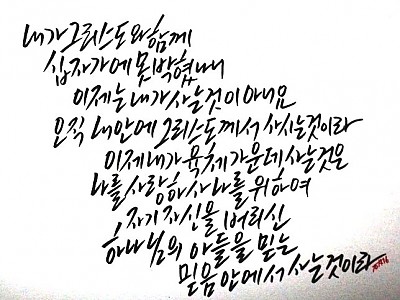 내가 그리스도와 함께
십자가에 못박혔나니
이제는 내가 사는것이 아니요
오직 내안에 그리스도께서 사시는것이라
이제 내가 육체 가운데 사는것은
나를 사랑하사 나를 위하여
자기 자신을 버리신
하나님의 아들을 믿는
믿음 안에서 사는것이라